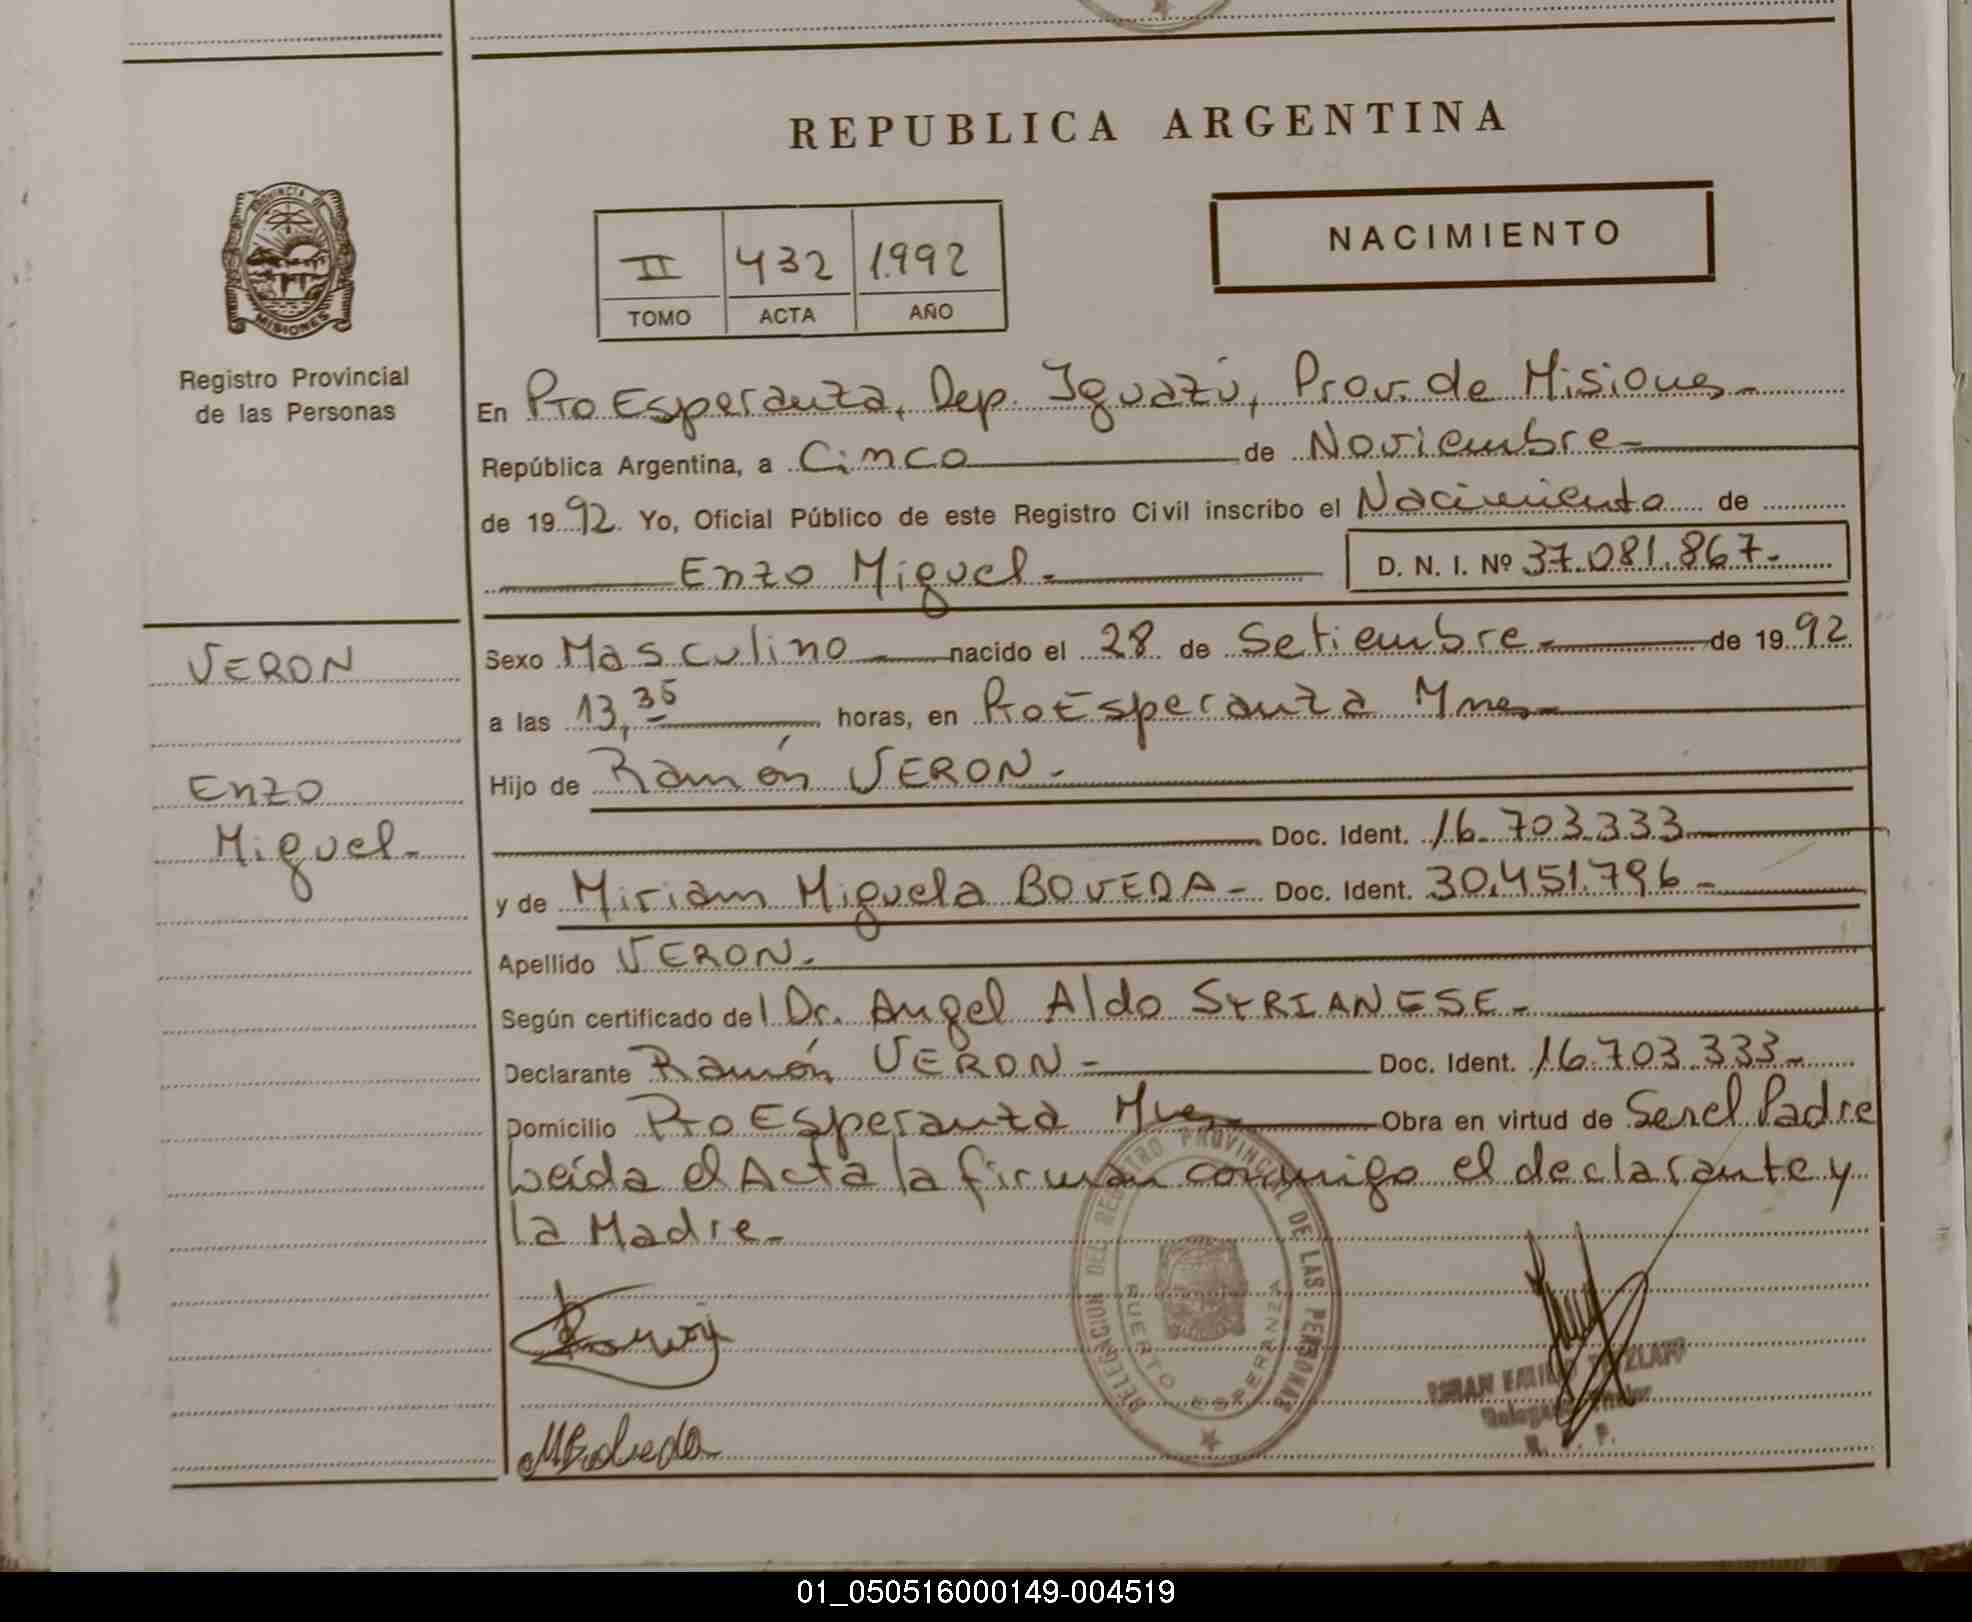 REPUBLICA ARGENTINA
PROVINCIA DE
MISIONES
Registro Provincial
de las Personas
II 432 1992
TOMO ACTA AÑO
NACIMIENTO
En Pto Esperanza, Dep. Iguazú, Prov. de Misiones-
República Argentina, a Cinco de Noviembre-
de 1992. Yo, Oficial Público de este Registro Civil inscribo el Nacimiento de
Enzo Miguel-
D. N. I. Nº 37.081.867-
VERON
Enzo
Miguel-
Sexo Masculino - nacido el 28 de Setiembre- de 1992.
a las 13,35 horas, en Pto Esperanza Mnes-
Hijo de Ramón VERON-
Doc. Ident. 16.703.333
y de Miriam Miguela BOVEDA- Doc. Ident. 30.451.796-
Apellido VERON-
Según certificado del Dr. Angel Aldo SYRIANESE-
Declarante Ramón VERON- Doc. Ident. 16.703.333-
Domicilio Pto Esperanza Mnes- Obra en virtud de Ser el Padre
Leída el Acta la firman conmigo el declarante y
la Madre-
DELEGACION DEL REGISTRO PROVINCIAL DE LAS PERSONAS
PUERTO ESPERANZA
MBoveda
01_050516000149-004519